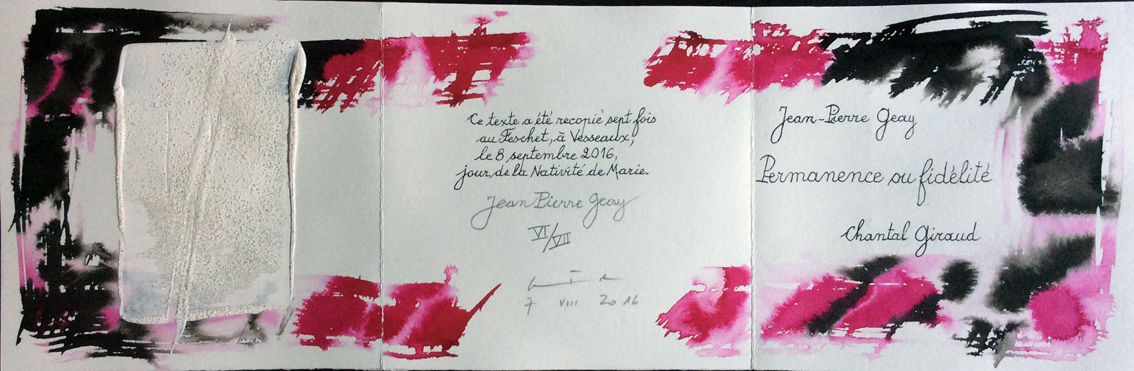 Ce texte a été recopié sept fois
au Feschet, à Vesseaux,
le 8 septembre 2016,
jour de la Nativité de Marie.
Jean Pierre Geay
VI/VII
7 VIII 2016
Jean-Pierre Geay
Permanence ou fidélité
Chantal Giraud